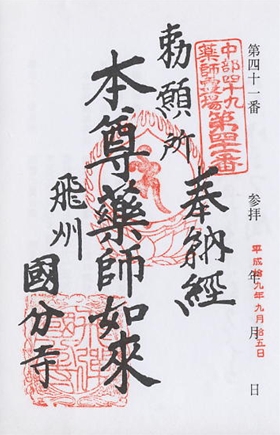 第四十一番　参拝　年　月　日
平成拾九年九月拾五日
中部四十九
薬師霊場第四十一番
奉納經
勅願所
本尊薬師如來
飛州
國分寺